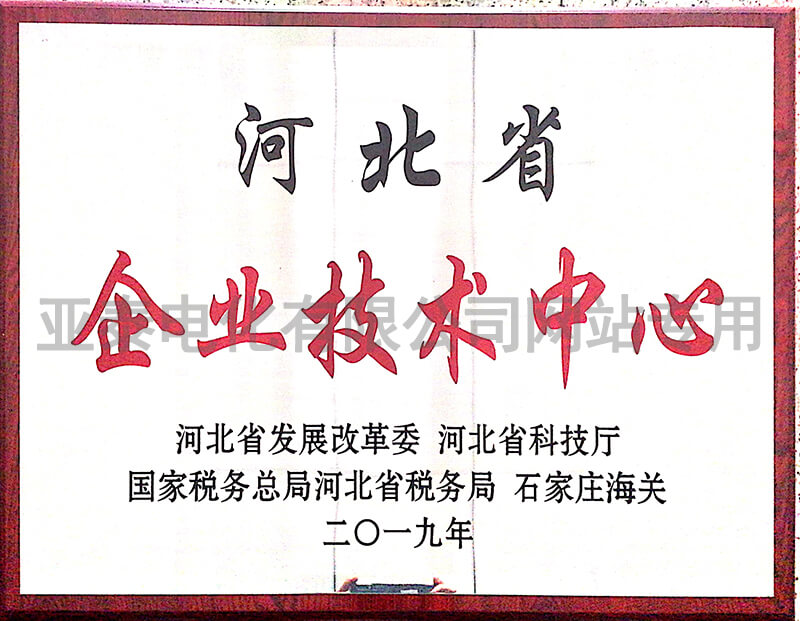 河北省
企业技术中心
亚泰电化有限公司网站专用
河北省发展改革委 河北省科技厅
国家税务总局河北省税务局 石家庄海关
二〇一九年